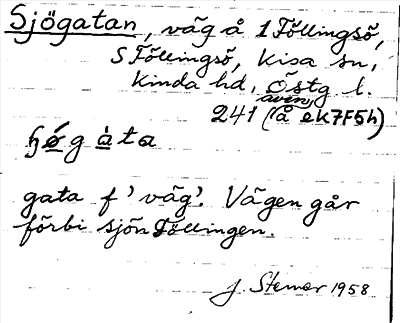 Sjögatan, väg å 1 Föllingsö,
S Föllingsö, Kisa sn,
Kinda hd, Östg l.
även
241 (å ek7F5h)
gata f' väg'. Vägen går
förbi sjön Föllingen.
J. Stemer 1958